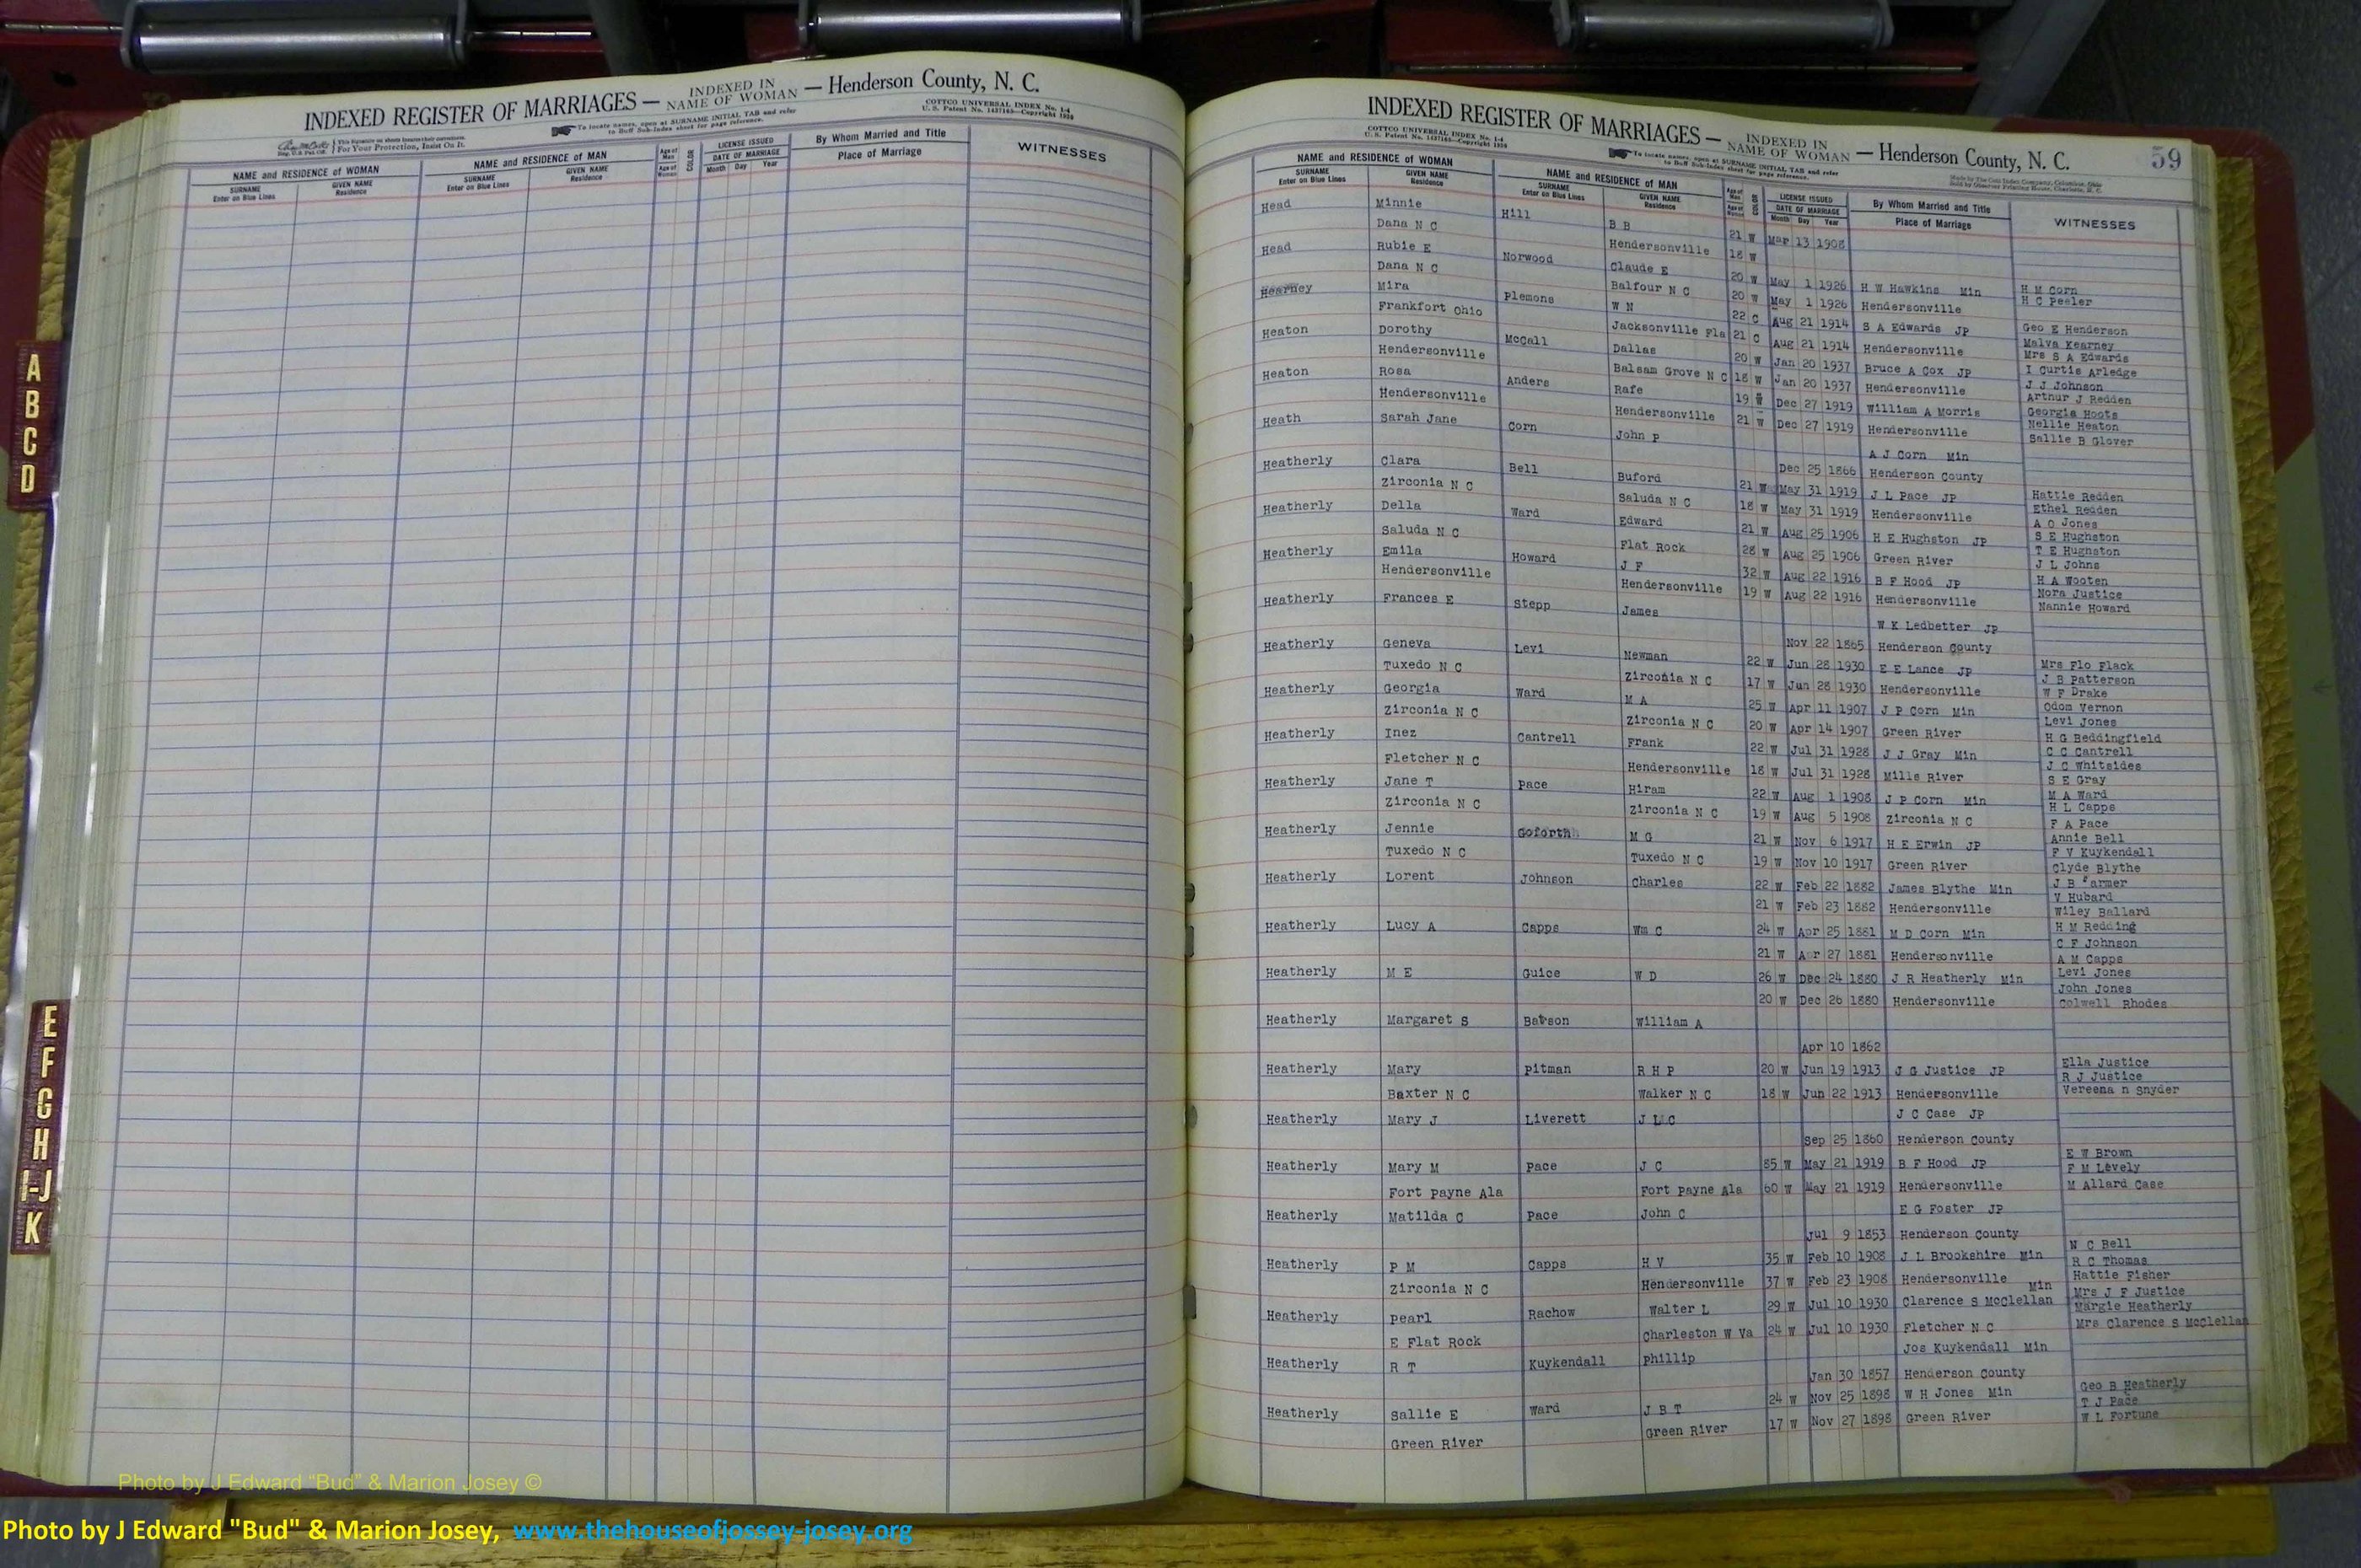 INDEXED REGISTER OF MARRIAGES — INDEXED IN NAME OF WOMAN — Henderson County, N. C.
COTTCO UNIVERSAL INDEX No. 1-4
U. S. Patent No. 1437165—Copyright 1936
To locate names, open at SURNAME INITIAL TAB and refer
to Buff Sub-Index sheet for page reference.
For Your Protection, Insist On It.
NAME and RESIDENCE OF WOMAN NAME and RESIDENCE OF MAN Age of Man Age of Woman COLOR LICENSE ISSUED DATE OF MARRIAGE Month Day Year By Whom Married and Title Place of Marriage WITNESSES
SURNAME Enter on Blue Lines GIVEN NAME Residence SURNAME Enter on Blue Lines GIVEN NAME Residence
A
B
C
D
E
F
G
H
I-J
K
INDEXED REGISTER OF MARRIAGES — INDEXED IN NAME OF WOMAN — Henderson County, N. C. 59
COTTCO UNIVERSAL INDEX No. 1-4
U. S. Patent No. 1437165—Copyright 1936
To locate names, open at SURNAME INITIAL TAB and refer
to Buff Sub-Index sheet for page reference.
NAME and RESIDENCE OF WOMAN NAME and RESIDENCE OF MAN Age of Man Age of Woman COLOR LICENSE ISSUED DATE OF MARRIAGE Month Day Year By Whom Married and Title Place of Marriage WITNESSES
SURNAME Enter on Blue Lines GIVEN NAME Residence SURNAME Enter on Blue Lines GIVEN NAME Residence
Head Minnie Hill B B 21 W Mar 13 1908
Dana N C Hendersonville 18 W
Head Rubie E Norwood Claude E 20 W May 1 1926 H W Hawkins Min H M Corn
Dana N C Balfour N C 20 W May 1 1926 Hendersonville H C Peeler
Hearney Mira Plemons W N 22 C Aug 21 1914 S A Edwards JP Geo E Henderson
Frankfort Ohio Jacksonville Fla 21 C Aug 21 1914 Hendersonville Malva Kearney
Mrs S A Edwards
Heaton Dorothy McCall Dallas 20 W Jan 20 1937 Bruce A Cox JP I Curtis Arledge
Hendersonville Balsam Grove N C 18 W Jan 20 1937 Hendersonville J J Johnson
Arthur J Redden
Heaton Rosa Anders Rafe 19 W Dec 27 1919 William A Morris Georgia Hoots
Hendersonville Hendersonville 21 W Dec 27 1919 Hendersonville Nellie Heaton
Sallie B Glover
Heath Sarah Jane Corn John P A J Corn Min
Dec 25 1866 Henderson County
Heatherly Clara Bell Buford 21 W May 31 1919 J L Pace JP Hattie Redden
Zirconia N C Saluda N C 18 W May 31 1919 Hendersonville Ethel Redden
A O Jones
Heatherly Della Ward Edward 21 W Aug 25 1906 H E Hughston JP S E Hughston
Saluda N C Flat Rock 28 W Aug 25 1906 Green River T E Hughston
J L Johns
Heatherly Emila Howard J F 32 W Aug 22 1916 B F Hood JP H A Wooten
Hendersonville Hendersonville 19 W Aug 22 1916 Hendersonville Nora Justice
Nannie Howard
Heatherly Frances E Stepp James W K Ledbetter JP
Nov 22 1865 Henderson County
Heatherly Geneva Levi Newman 22 W Jun 28 1930 E E Lance JP Mrs Flo Flack
Tuxedo N C Zirconia N C 17 W Jun 28 1930 Hendersonville J B Patterson
W F Drake
Heatherly Georgia Ward M A 25 W Apr 11 1907 J P Corn Min Odom Vernon
Zirconia N C Zirconia N C 20 W Apr 14 1907 Green River Levi Jones
H G Beddingfield
Heatherly Inez Cantrell Frank 22 W Jul 31 1928 J J Gray Min C C Cantrell
Fletcher N C Hendersonville 18 W Jul 31 1928 Mills River J C Whitsides
S E Gray
Heatherly Jane T Pace Hiram 22 W Aug 1 1908 J P Corn Min M A Ward
Zirconia N C Zirconia N C 19 W Aug 5 1908 Zirconia N C H L Capps
F A Pace
Heatherly Jennie Goforth M G 21 W Nov 6 1917 H E Erwin JP Annie Bell
Tuxedo N C Tuxedo N C 19 W Nov 10 1917 Green River F V Kuykendall
Clyde Blythe
Heatherly Lorent Johnson Charles 22 W Feb 22 1882 James Blythe Min J B Farmer
V Hubard
21 W Feb 23 1882 Hendersonville Wiley Ballard
Heatherly Lucy A Capps Wm C 24 W Apr 25 1881 M D Corn Min H M Redding
C F Johnson
21 W Apr 27 1881 Hendersonville A M Capps
Heatherly M E Guice W D 26 W Dec 24 1880 J R Heatherly Min Levi Jones
John Jones
20 W Dec 26 1880 Hendersonville Colwell Rhodes
Heatherly Margaret S Batson William A
Apr 10 1862
Heatherly Mary Pitman R H P 20 W Jun 19 1913 J G Justice JP Ella Justice
R J Justice
Baxter N C Walker N C 18 W Jun 22 1913 Hendersonville Vereena n Snyder
Heatherly Mary J Liverett J L C J C Case JP
Sep 25 1860 Henderson County
Heatherly Mary M Pace J C 85 W May 21 1919 B F Hood JP E W Brown
F M Lively
Fort Payne Ala Fort Payne Ala 60 W May 21 1919 Hendersonville M Allard Case
Heatherly Matilda C Pace John C E G Foster JP
Jul 9 1853 Henderson County
Heatherly P M Capps H V 35 W Feb 10 1908 J L Brookshire Min N C Bell
R C Thomas
Zirconia N C Hendersonville 37 W Feb 23 1908 Hendersonville Hattie Fisher
Heatherly Pearl Rachow Walter L 29 W Jul 10 1930 Clarence S McClellan Min Mrs J F Justice
Margie Heatherly
E Flat Rock Charleston W Va 24 W Jul 10 1930 Fletcher N C Mrs Clarence S McClellan
Heatherly R T Kuykendall Phillip Jos Kuykendall Min
Jan 30 1857 Henderson County
Heatherly Sallie E Ward J B T 24 W Nov 25 1898 W H Jones Min Geo B Heatherly
T J Pace
Green River Green River 17 W Nov 27 1898 Green River W L Fortune
Photo by J Edward "Bud" & Marion Josey ©
Photo by J Edward "Bud" & Marion Josey, www.thehouseofjossey-josey.org